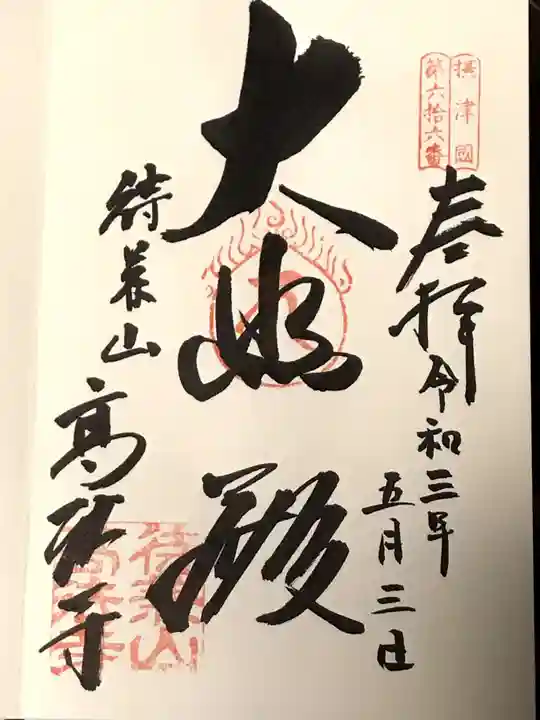 摂津國
第六拾六番
奉拝 令和三年
五月三日
大悲殿
待兼山
高法寺
待兼山
高法寺